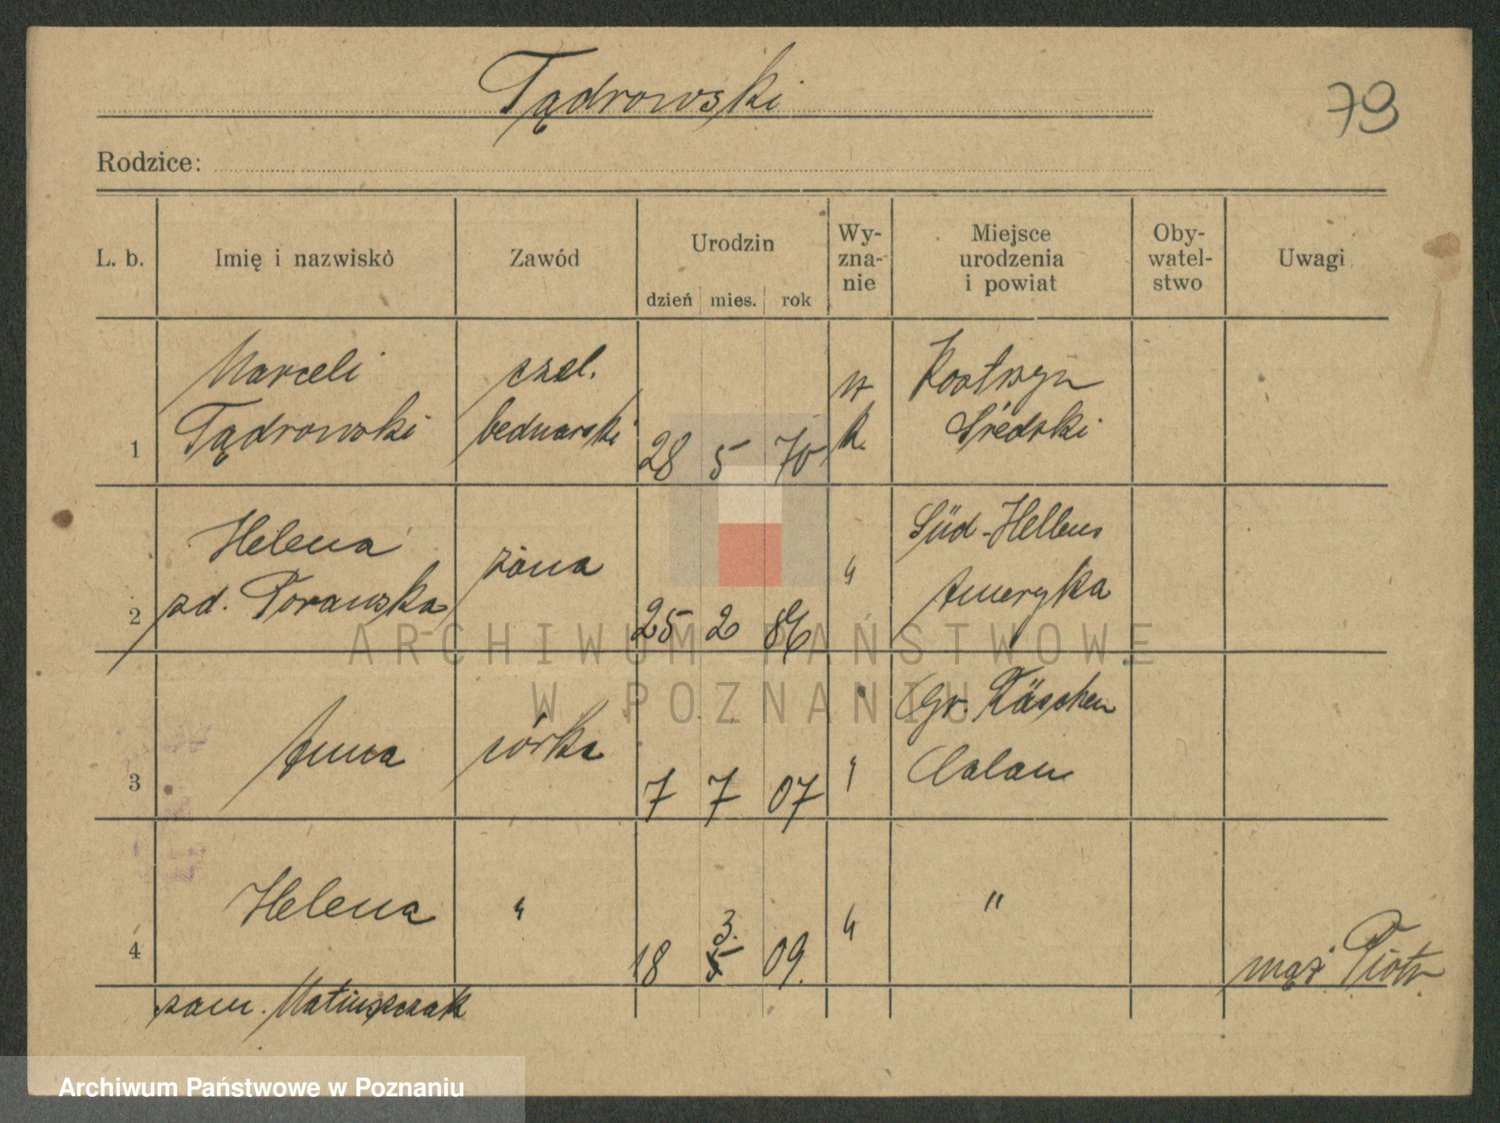 Tądrowski
79
Rodzice:
L. b. Imię i nazwisko Zawód Urodzin dzień mies. rok Wy-zna-nie Miejsce urodzenia i powiat Oby-watel-stwo Uwagi
Marceli czel.
1 Tądrowski bednarski 28 5 70 k. Średzki
Helena żona " Süd-
2 zd. Ameryka
25 2 86
Anna córka " Gr. Räschen
3 7 7 07 Calau
Helena " " "
4 18 3. 5 09. mąż Piotr
zam. Matuszczak
ARCHIWUM PAŃSTWOWE
W POZNANIU
Archiwum Państwowe w Poznaniu